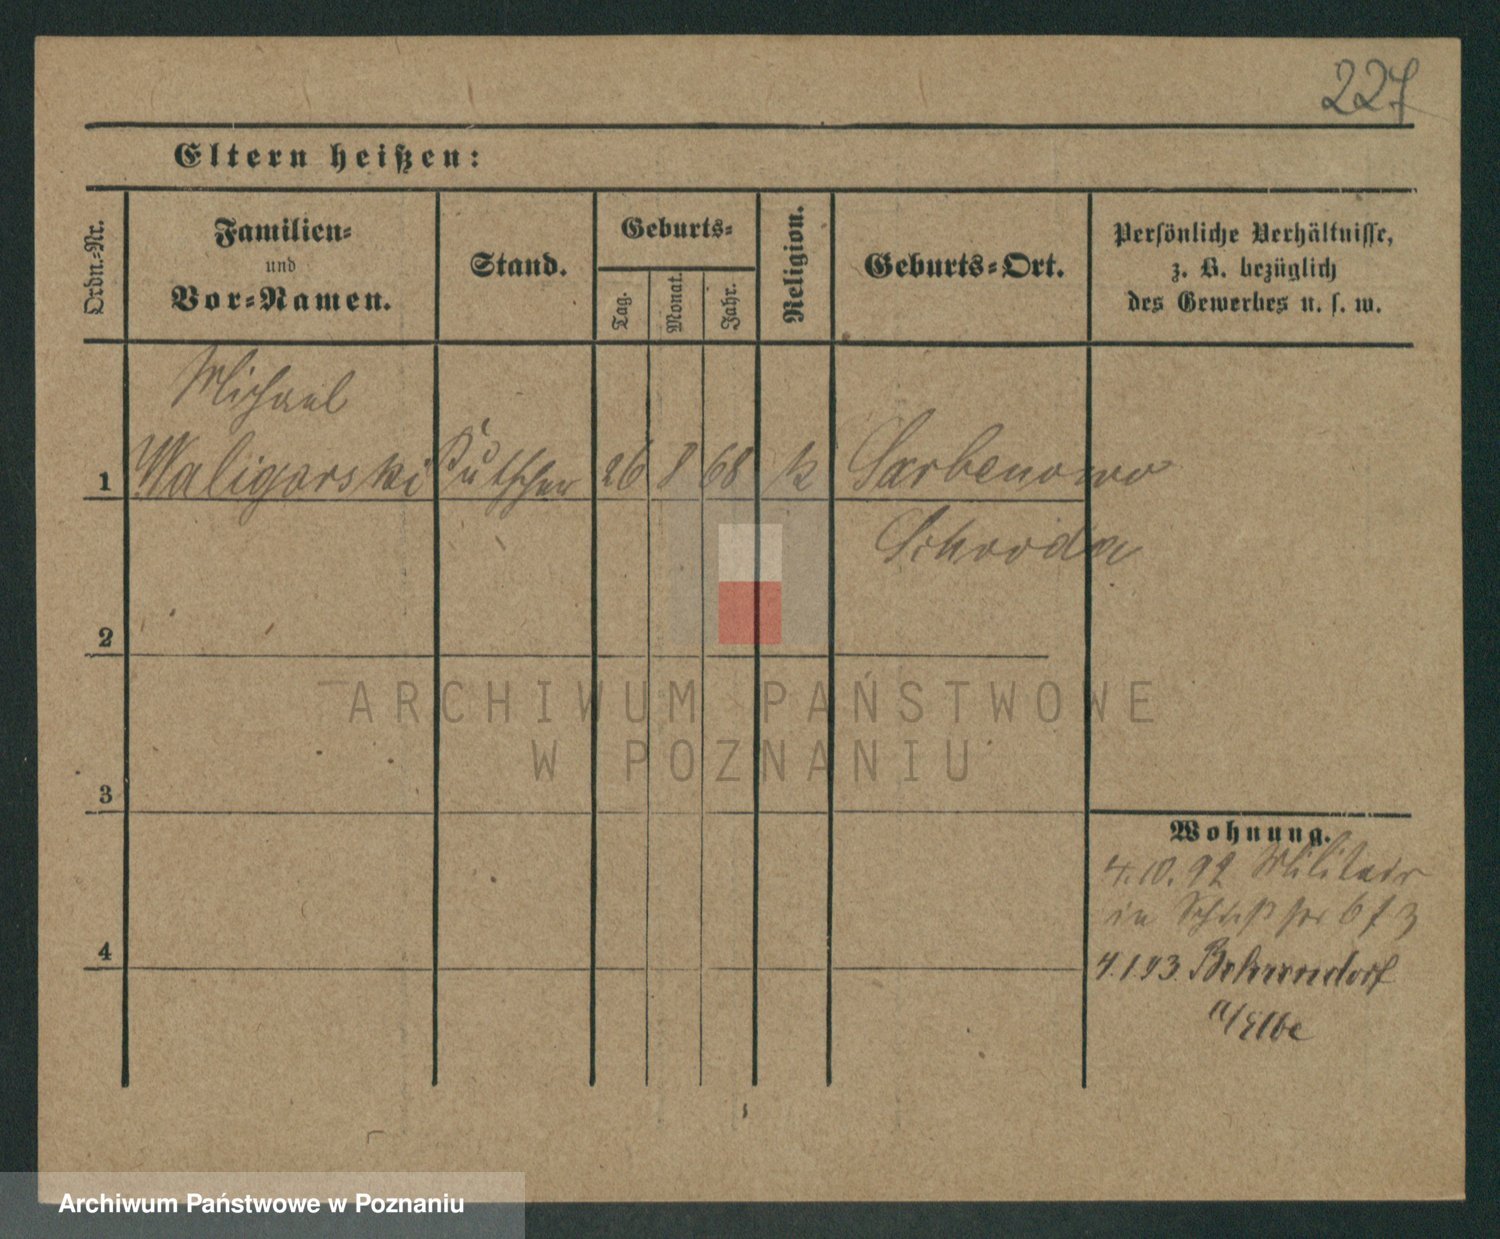 227
Eltern heißen:
Ordn.-Nr.
Familien-
und
Vor-Namen.
Stand.
Geburts-
Tag.
Monat.
Jahr.
Religion.
Geburts-Ort.
Persönliche Verhältnisse,
z. B. bezüglich
des Gewerbes u. s. w.
Michael
1 Waligorski Kutscher 26 8 68 k Sarbenowo
Schroda
2
3
4
Wohnung.
4.10.92 Militair
in
4.1.93. Behrendorf
a/Elbe
ARCHIWUM PAŃSTWOWE
W POZNANIU
Archiwum Państwowe w Poznaniu